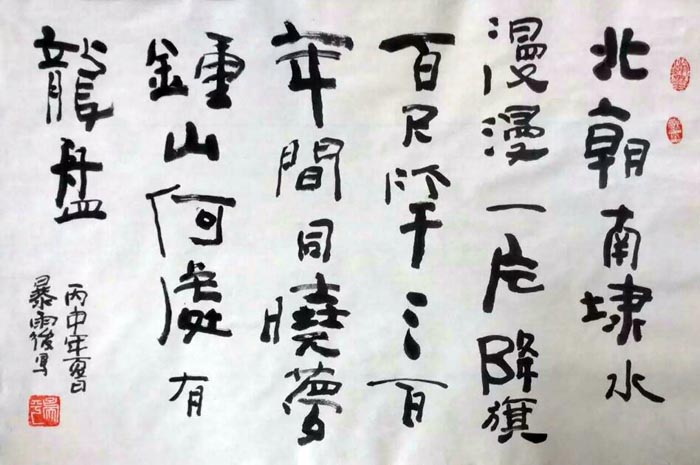 北朝南埭水
漫漫一片降旗
百尺竿三百
年間同曉夢
鍾山何處有
龍盤
丙申年夏日
暴雨後写